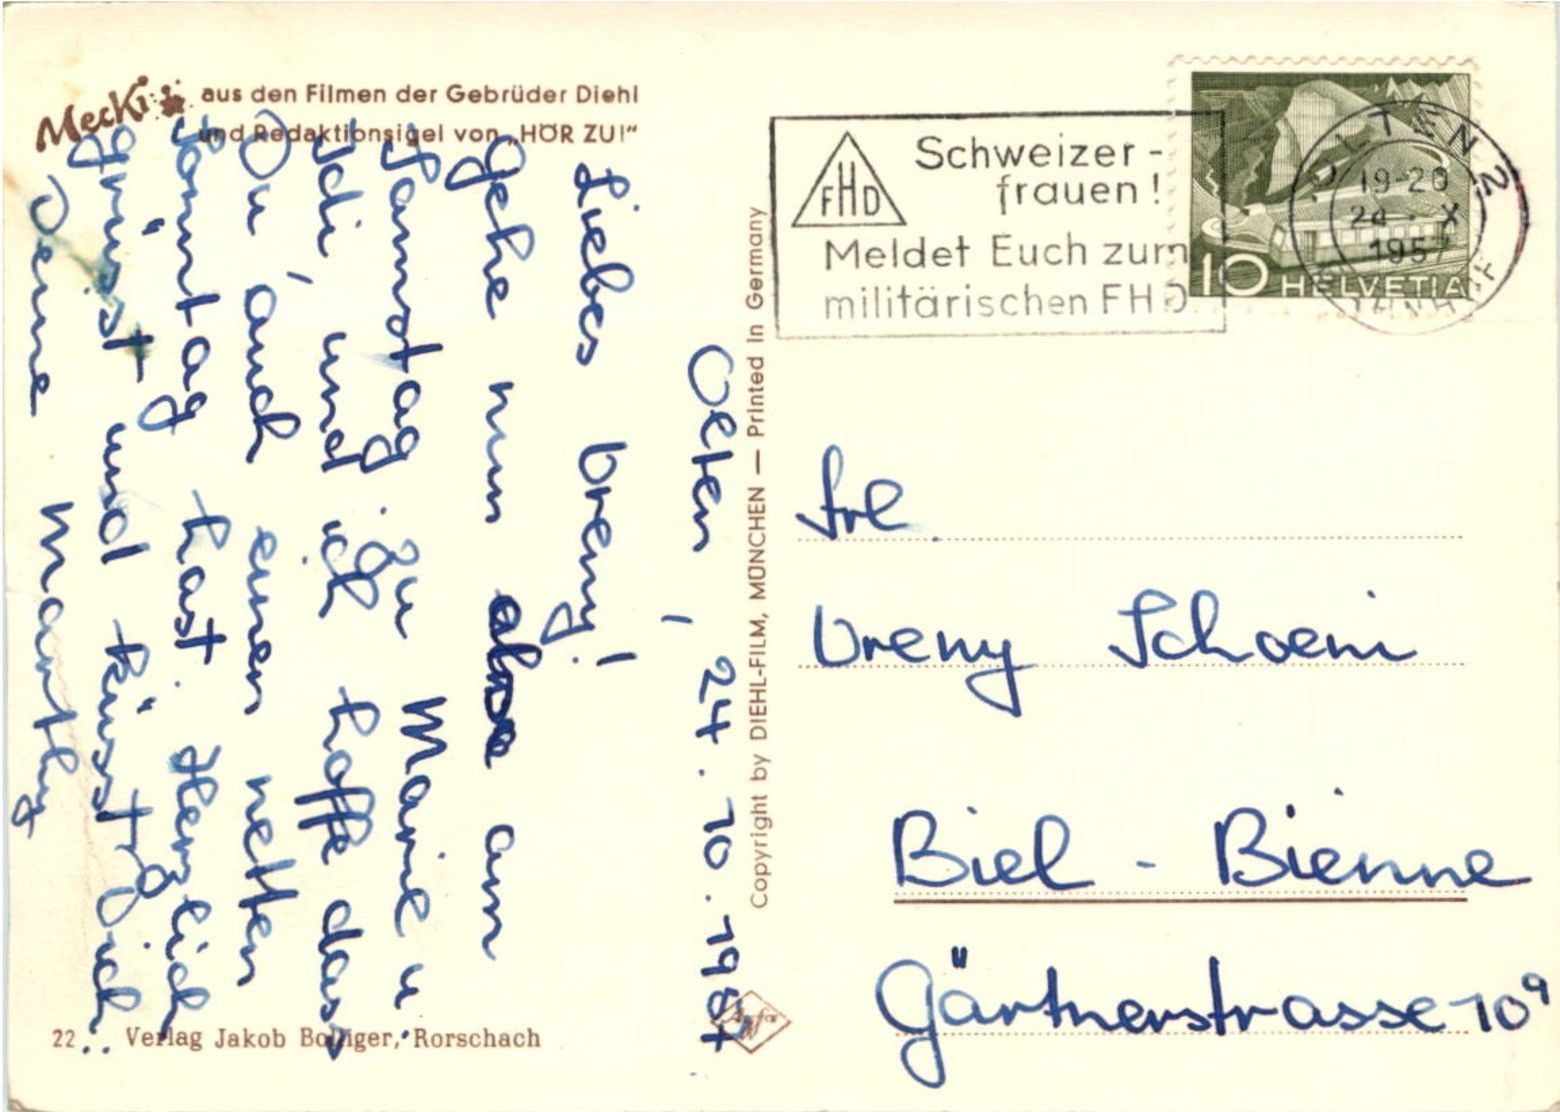 Mecki aus den Filmen der Gebrüder Diehl
und Redaktionsigel von „HÖR ZU!"
Olten, 24.10.1957
Liebes Vreny!
Gehe nun also am
Samstag zu Marie u.
Idi, und ich hoffe dass
Du auch einen netten
Sonntag hast. Herzlich
grüsst und küsst Dich
Deine Marthy
22 Verlag Jakob Bolliger, Rorschach
Copyright by DIEHL-FILM, MÜNCHEN — Printed in Germany
Agfa
FHD
Schweizer-
frauen!
Meldet Euch zum
militärischen FHD
10 HELVETIA
OLTEN 2
19-20
24.X
1957
BAHNHOF
Frl.
Vreny Schoeni
Biel - Bienne
Gärtnerstrasse 10a